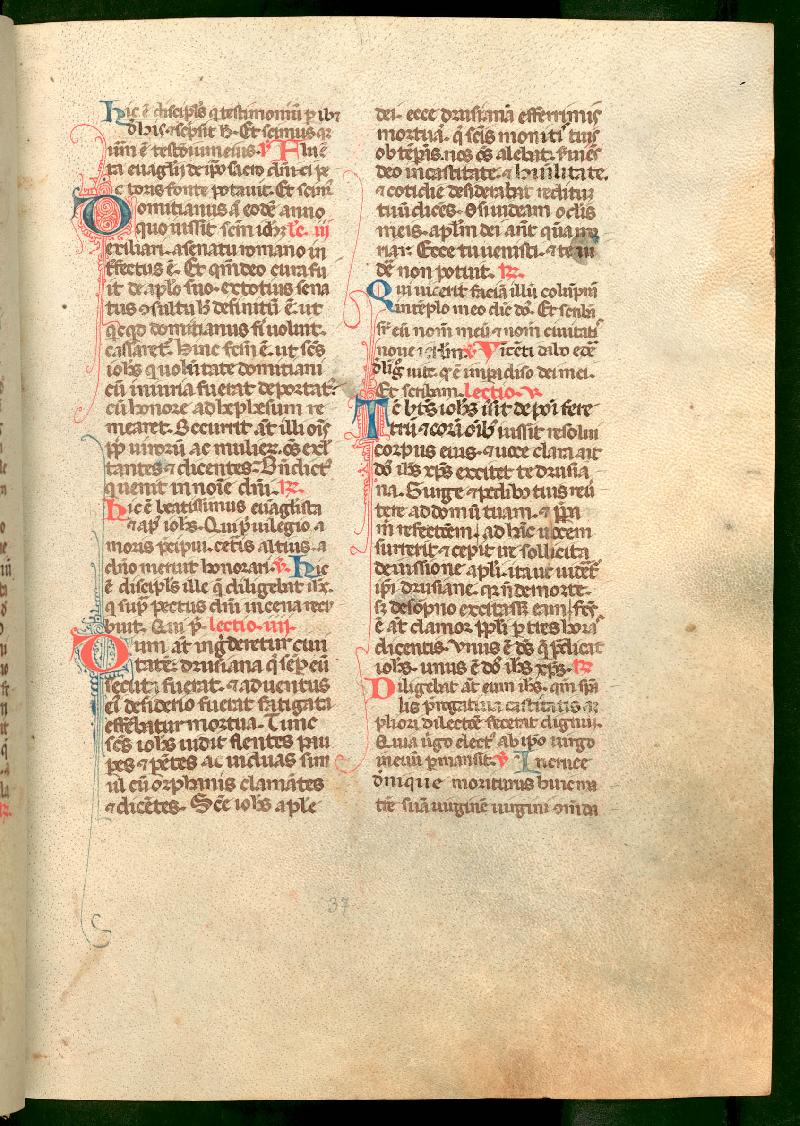 hic ē discipls q testimoniū p ibꝫ
ō bis ⁊ scpsit h̄. Et scimus qr
uim̄ ē testōium eius. ℣ Flue
ta euāglij de ip̄o sacro dn̄ici pe
c toris fonte potauit. Et scim᷒
Domitianus ā eodē anno
quo iussit scm̄ ioh̄ꝫ lc̄. iii
exiliari. a senatu romano in
ffectus ē. Et qm̄ deo cura fu
it de aplo suo. ex totius sena
tus ꝯsultu h̄ definitū ē. ut
qcqd domitianus fi uoluit.
cassaret. hinc fcm̄ ē. ut scs̄
ioh̄s q uolūtate domitiani
cū iniuria fuerat deportat᷒.
cū honore ad hephesum re
mearet. Occurrit āt illi oīs
ip̄ uirorū ac mulierꝫ. oēs exl
tantes ⁊ dicentes. Bn̄dict᷒
qui uenit in noīe dn̄i. ℟.
hic ē beatissimus euāglista
⁊ ap̄ ioh̄s. Qui p̄uilegio a
moris p̄cipui. cet̄is altius a
dn̄o meruit honorari. ℣. hic
ē discipls ille q̄ diligebat ih̄s.
q sup̄ pectus dn̄i in cena recu
buit. Qui p̄. lectio. iiii.
Dum āt inḡderetur ciui
tatē. drusiana q̄ sēp eū
secuta fuerat. ⁊ aduentus
ei᷒ desiderio fuerat fatigata
efferebatur mortua. Tunc
scs̄ ioh̄s uidit flentes pau
pes ⁊ p̄tētes ac uiduas sim
ul cū orphanis clamātes
⁊ dicētes. Scē ioh̄s aple
dei. ecce drusianā efferimus
mortuā. q̄ scīs monitis tuis
obtēp̄ns. nos oēs alebat. s̄uiēs
deo in castitate. ⁊ humilitate.
⁊ cotidie desiderabat reditū
tuū dicēs. O si uideam oclis
meis. aplm dei ānt quā mo
riar. Ecce tu uenisti. ⁊ te ui
dē non potuit. ℟.
Qui uicerit faciā illū colūpnā
in tēplo meo dic̄ dōs. Et scribā
sr̄ eū nom̄ meū ⁊ nom̄ ciuitatis
noue ierlm̄. ℣ Vicēti dabo edē
d liḡ uite. q̄ ē in padiso dei mei.
Et scribam. lectio. v.
Tc̄ bt̄s ioh̄s iūsit deponi fere
trū. ⁊ corā oīb᷒ iussit resolui
corpus eius. ⁊ uoce clara ait
dōs ih̄s xp̄s excitet te drusia
na. Surge ⁊ pedibꝫ tuis reu
tere ad domū tuam. ⁊ p̄pa
m̄ refectōem. ad hāc uocem
surrexit ⁊ cepit ire sollicita
de iussione apli. ita ut uidēt᷒
ip̄i drusiane. qr n̄ de morte.
sꝫ de sopno excitass̄ eam. fcs̄
ē āt clamor ppli p tres horas
dicentis. Unus ē ds̄ q̄ p̄dicat
ioh̄s. unus ē dōs ih̄s xp̄s. ℟
Diligebat āt eum ih̄s. qm̄ spa
lis p̄rogatiua castitatis am
pliori dilectōe fecerat dignum.
Quia ūgo elect᷒ ab ip̄o uirgo
in euū pmansit. ℣ In cruce
deniqꝫ moriturus huic ma
trē suā uirginē uirgini cōmēda
37